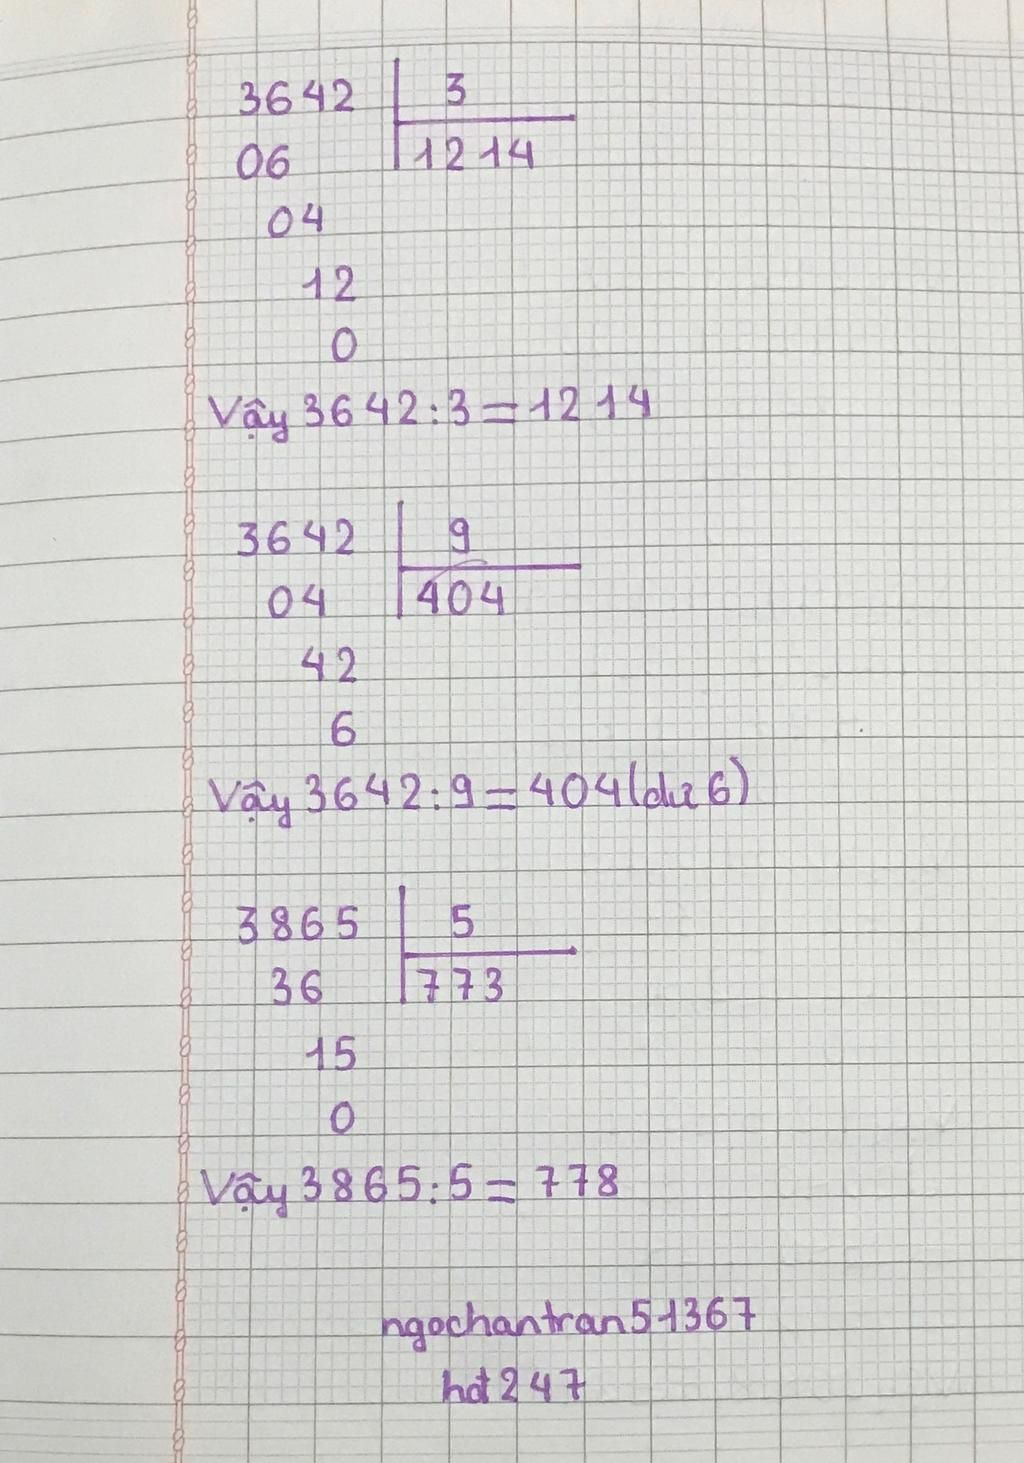 3642 3
06 1214
04
12
0
Vậy 3642:3=1214
3642 9
04 404
42
6
Vậy 3642:9=404(dư 6)
3865 5
36 773
15
0
Vậy 3865:5=778
ngochantran51367
hot247